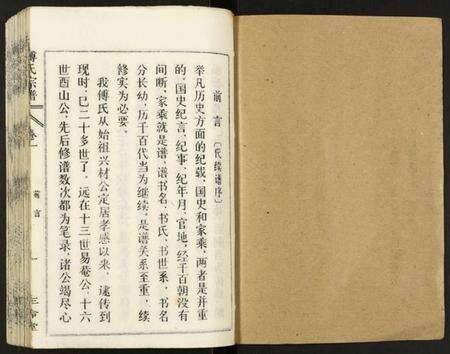 前言（代续谱序）
举凡历史方面的纪载、国史和家乘，两者是并重
的，国史纪言、纪事、纪年月、官地，经千百朝没有
间断，家乘就是谱，谱书名、书氏、书世系，书名
分长幼，历千百代当为继续，是谱关系至重，续
修实为必要。
我傅氏从始祖兴材公定居孝感以来，递传到
现时，已二十多世了。远在十三世易菴公，十六
世酉山公，先后修谱数次都为笔录，诸公竭尽心
傅氏宗谱
卷一
前言
一